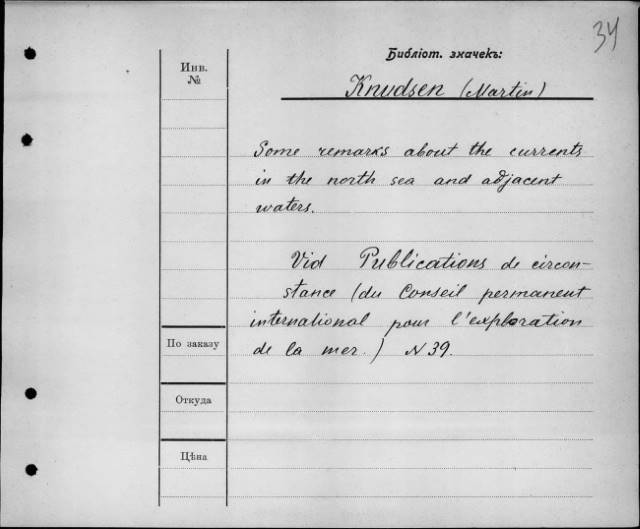 34
Библіот. значекъ:
Инв.
№
Knudsen (Martin)
Some remarks about the currents
in the north sea and adjacent
waters.
Vid Publications de circon-
stance (du Conseil permanent
international pour l'exploration
de la mer.) N 39.
По заказу
Откуда
Цѣна